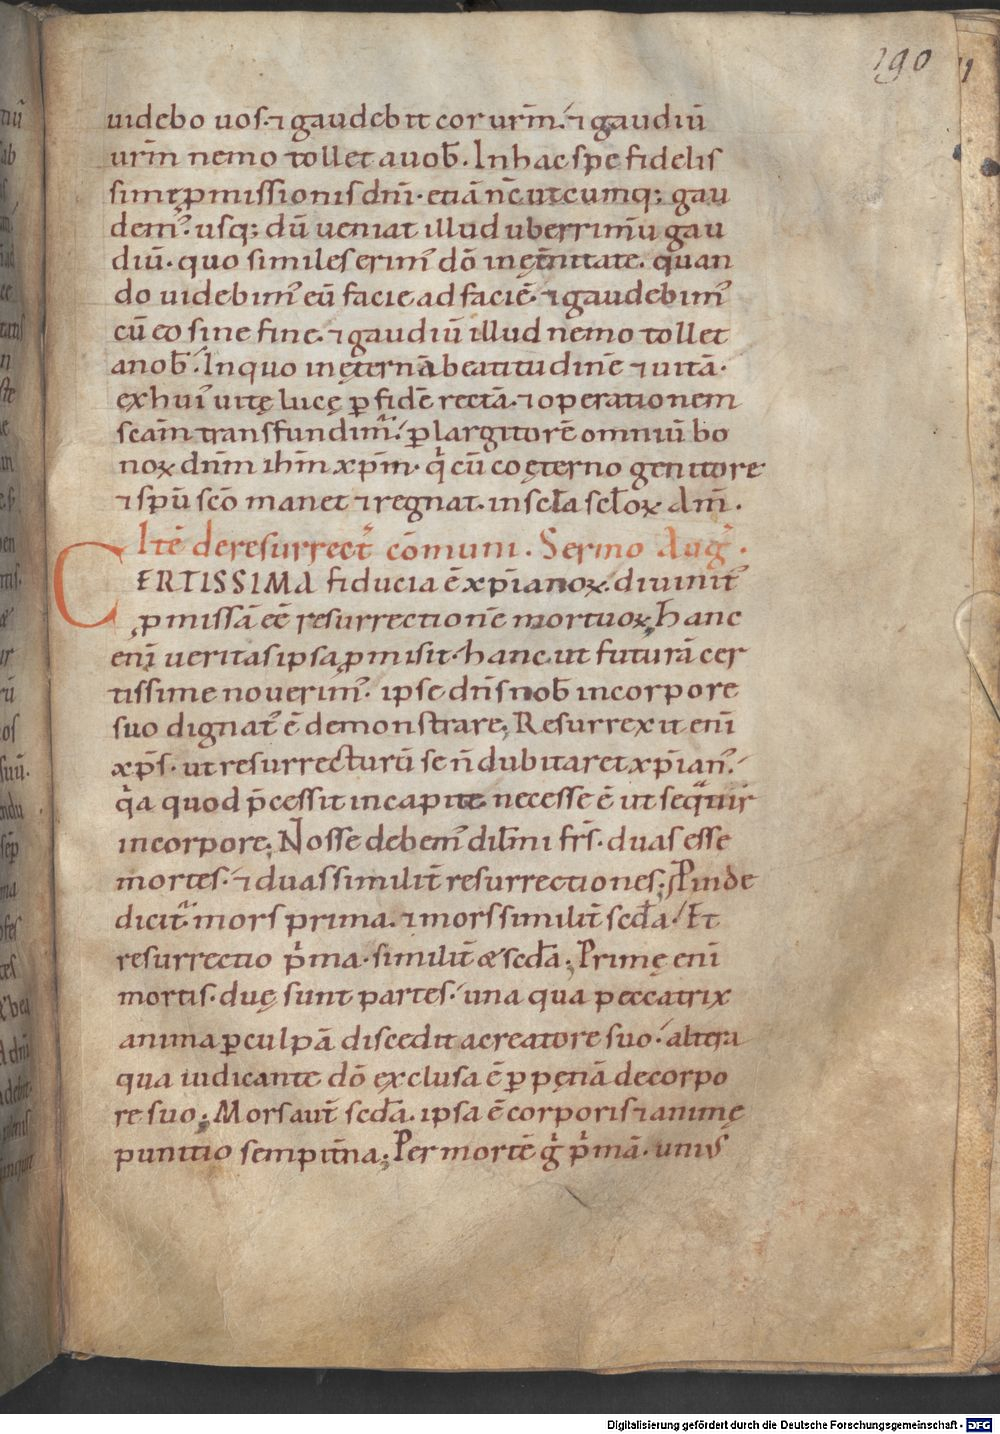 190
uidebo uos· ⁊ gaudebit cor urm̄· ⁊ gaudiū
urm̄ nemo tollet a uob̄· In hac spe fidelis
simę ꝓmissionis dnī· etiā nc̄ utcumq; gau
dem᷒· usq; dū ueniat illud uberrimū gau
diū· quo similes erim᷒ dō in ęt̄nitate· quan
do uidebim᷒ eū facie ad faciē· ⁊ gaudebim᷒
cū eo sine fine· ⁊ gaudiū illud nemo tollet
a nob̄· In quo in ęternā beatitudinē ⁊ uitā·
ex hui᷒ uitę lucę ꝑ fidē rectā· ⁊ operationem
scām transfundim᷒· ꝑ largitorē omniū bo
noꝝ dnm̄ ihm̄ xpm̄· qͥ cū coęterno genitore
⁊ spū scō manet ⁊ regnat· in scl̄a scl̄oꝝ am̄·
Itē de resurrect̄ cōmuni· Sermo Auḡ·
CERTISSIMA fiducia ē xp̄ianoꝝ· diuinit᷒
ꝓmissā eē resurrectionē mortuoꝝ; Hanc
enī ueritas ipsa ꝓmisit· hanc ut futurā cer
tissime nouerim᷒· ipse dn̄s nob̄ in corpore
suo dignat᷒ ē demonstrare; Resurrexit enī
xp̄s· ut resurrecturū se n̄ dubitaret xp̄ian᷒·
qͥa quod p̄cessit in capite· necesse ē ut sequatur
in corpore; Nosse debem᷒ dil̄mi frs̄· duas esse
mortes· ⁊ duas similit̄ resurrectiones; Proinde
dicit᷒ mors prima· ⁊ mors similit̄ scd̄a· Et
resurrectio pͥma· similit̄ & scd̄a; Primę enī
mortis· duę sunt partes· una qua peccatrix
anima ꝑ culpā discedit a creatore suo· altera
qua iudicante dō exclusa ē ꝑ pęnā de corpo
re suo; Mors aut̄ scd̄a· ipsa ē corporis ⁊ animę
punitio sempit̄na; Per mortē gͥ pͥmā· unius
Digitalisierung gefördert durch die Deutsche Forschungsgemeinschaft - DFG